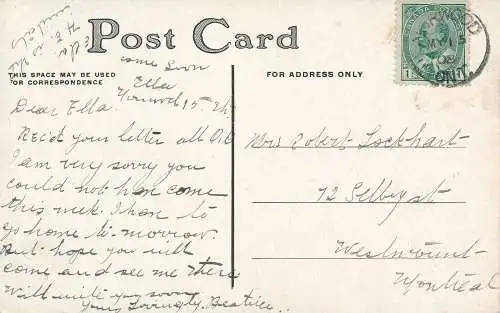 Post Card
THIS SPACE MAY BE USED
FOR CORRESPONDENCE
FOR ADDRESS ONLY.
come soon
Ella
Norwood 15th
Dear Ella
Rec'd your letter all O.K.
I am very sorry you
could not have come
this week. I have to
go home to-morrow.
But hope you will
come and see me there
Will write you soon
Yours Lovingly, Beatrice.
Mrs Robert Lockhart
72 Selby st
Westmount
Montreal
NORWOOD
MY
08
ONT.